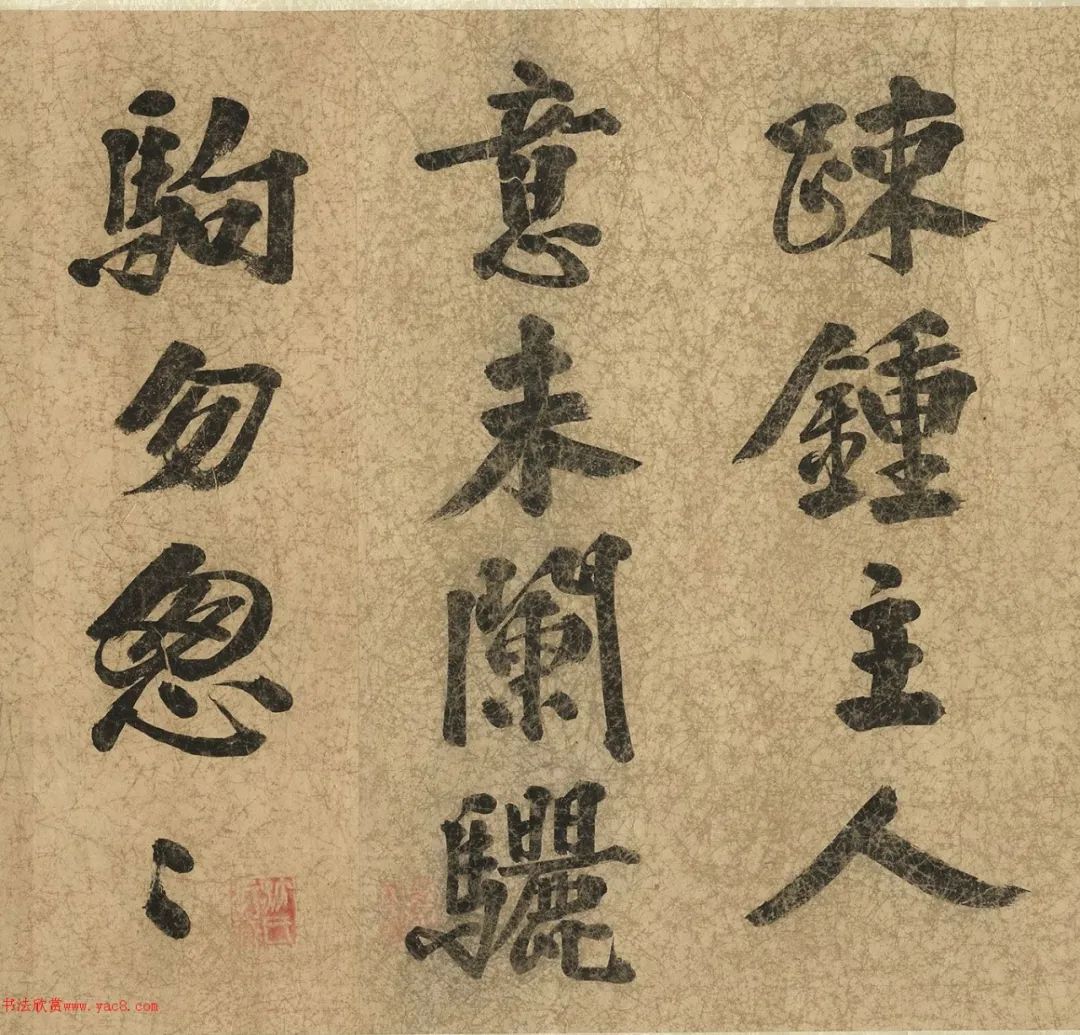 踈鍾主人
意未闌驪
駒勿怱〻
书法欣赏www.yac8.com